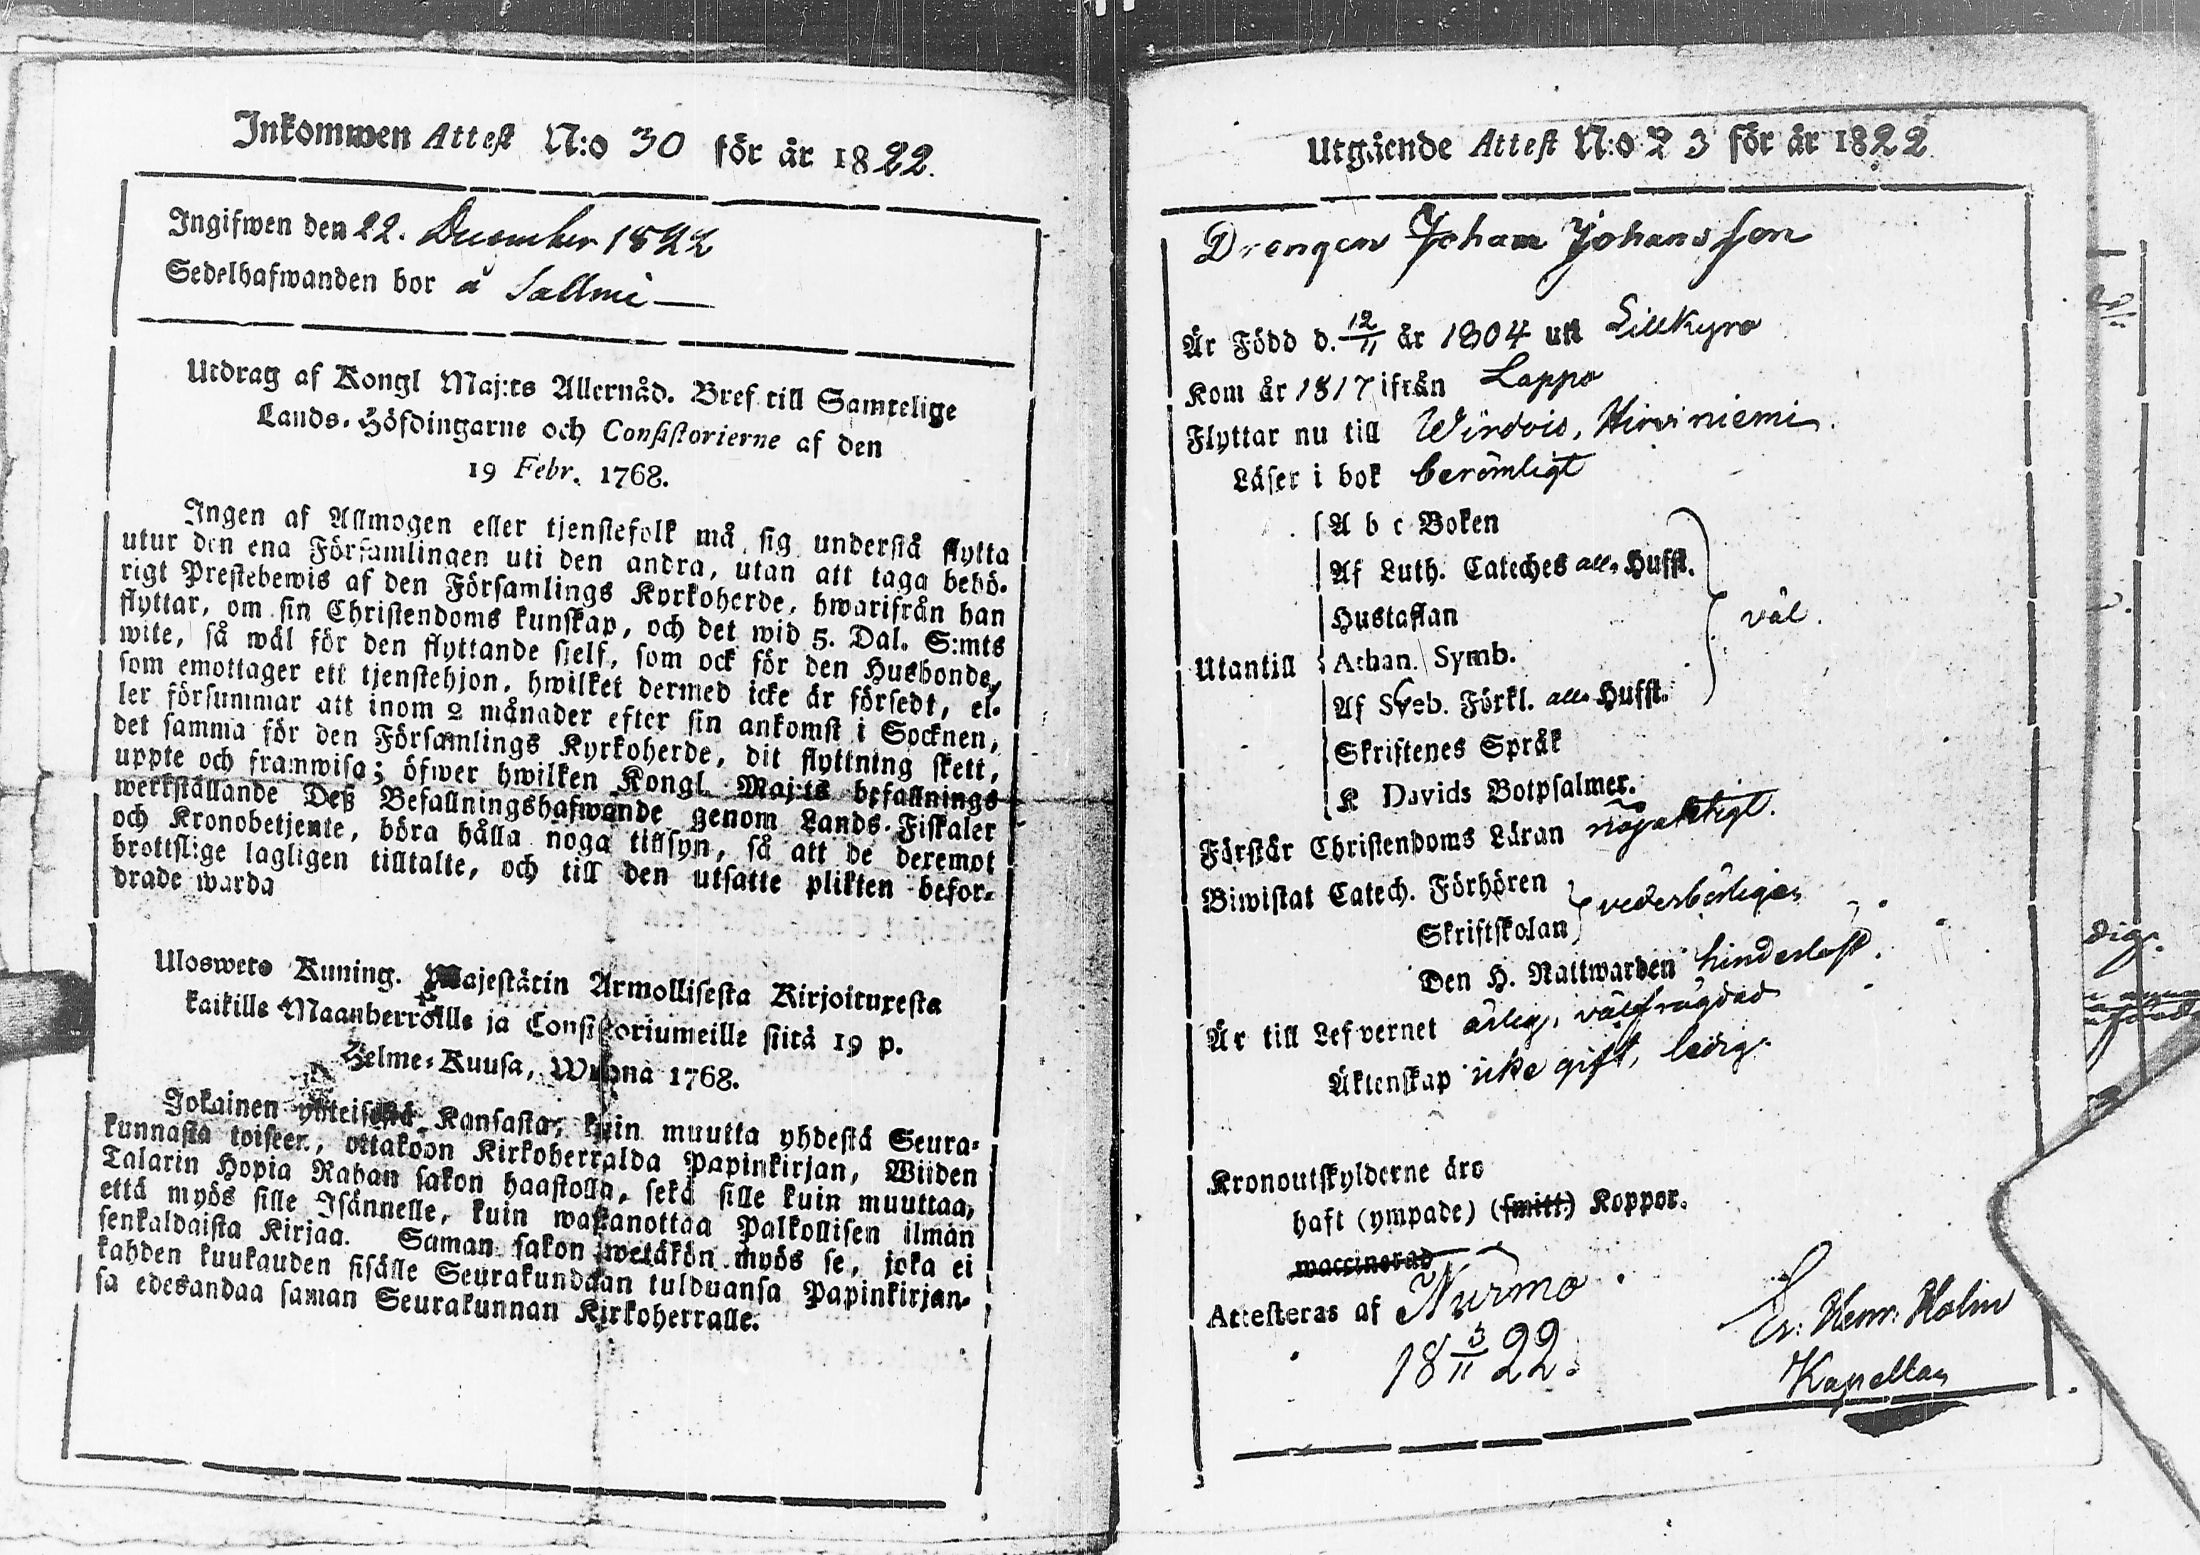 Inkommen Attest N:o 30 för år 1822.
Ingifwen den 22. December 1822
Sedelhafwanden bor å Sallmi
Utdrag af Kongl Maj:ts Allernåd. Bref till Samtelige
Lands-Höfdingarne och Consistorierne af den
19 Febr. 1768.
Ingen af Allmogen eller tjenstefolk må sig understå flytta
utur den ena Församlingen uti den andra, utan att taga behö-
rigt Prestebewis af den Församlings Kyrkoherde, hwarifrån han
flyttar, om sin Christendoms kunskap, och det wid 5. Dal. S:mts
wite, så wäl för den flyttande sjelf, som ock för den Husbonde,
som emottager ett tjenstehjon, hwilket dermed icke är försedt, el-
ler försummar att inom 2 månader efter sin ankomst i Socknen,
det samma för den Församlings Kyrkoherde, dit flyttning skett,
uppte och framwisa; öfwer hwilken Kongl. Maj:ts befallnings
werkställande Deß Befallningshafwande genom Lands-Fiskaler
och Kronobetjente, böra hålla noga tillsyn, så att de deremot
brottslige lagligen tilltalte, och till den utsatte plikten befor-
drade warda
Uloswets Kuning. Majestätin Armollisesta Kirjoituxesta
kaikille Maanherroille ja Consistoriumeille siitä 19 p.
Helme-Kuusa, Wuonna 1768.
Jokainen yhteisestä Kansasta, kuin muutta yhdestä Seura-
kunnasta toiseen, ottakoon Kirkoherralda Papinkirjan, Wiiden
Talarin Hopia Rahan sakon haastolla, sekä sille kuin muuttaa,
että myös sille Isännelle, kuin wastanottaa Palkollisen ilman
senkaldaista Kirjaa. Saman sakon wetäkön myös se, joka ei
kahden kuukauden sisälle Seurakundaan tulduansa Papinkirjan-
sa edesandaa saman Seurakunnan Kirkoherralle.
Utgående Attest N:o 23 för år 1822
Drengen Johan Johansson
Är Född d. 12/11 år 1804 uti Lillkyro
Kom år 1817 ifrån Lappo
Flyttar nu till Wirdois, Hirviniemi.
Läser i bok berömligt
A b c Boken
Af Luth. Cateches alla Hufst.
Hustaflan
väl.
Utantill Athan. Symb.
Af Sveb. Förkl. alla Hufst.
Skriftenes Språk
K Davids Botpsalmer.
Förstår Christendoms Läran nöjaktigt.
Biwistat Catech. Förhören
vederbörligen
Skriftskolan
Den H. Nattwarden hinderlöst.
Är till Lefvernet ärlig, välfrägdad
Äktenskap icke gift, ledig.
Kronoutskylderne äro
haft (ympade) (smitt) Koppor.
waccinerad
Attesteras af Nurmo
18 3/11 22.
Er. Henr. Holm
Kapellan